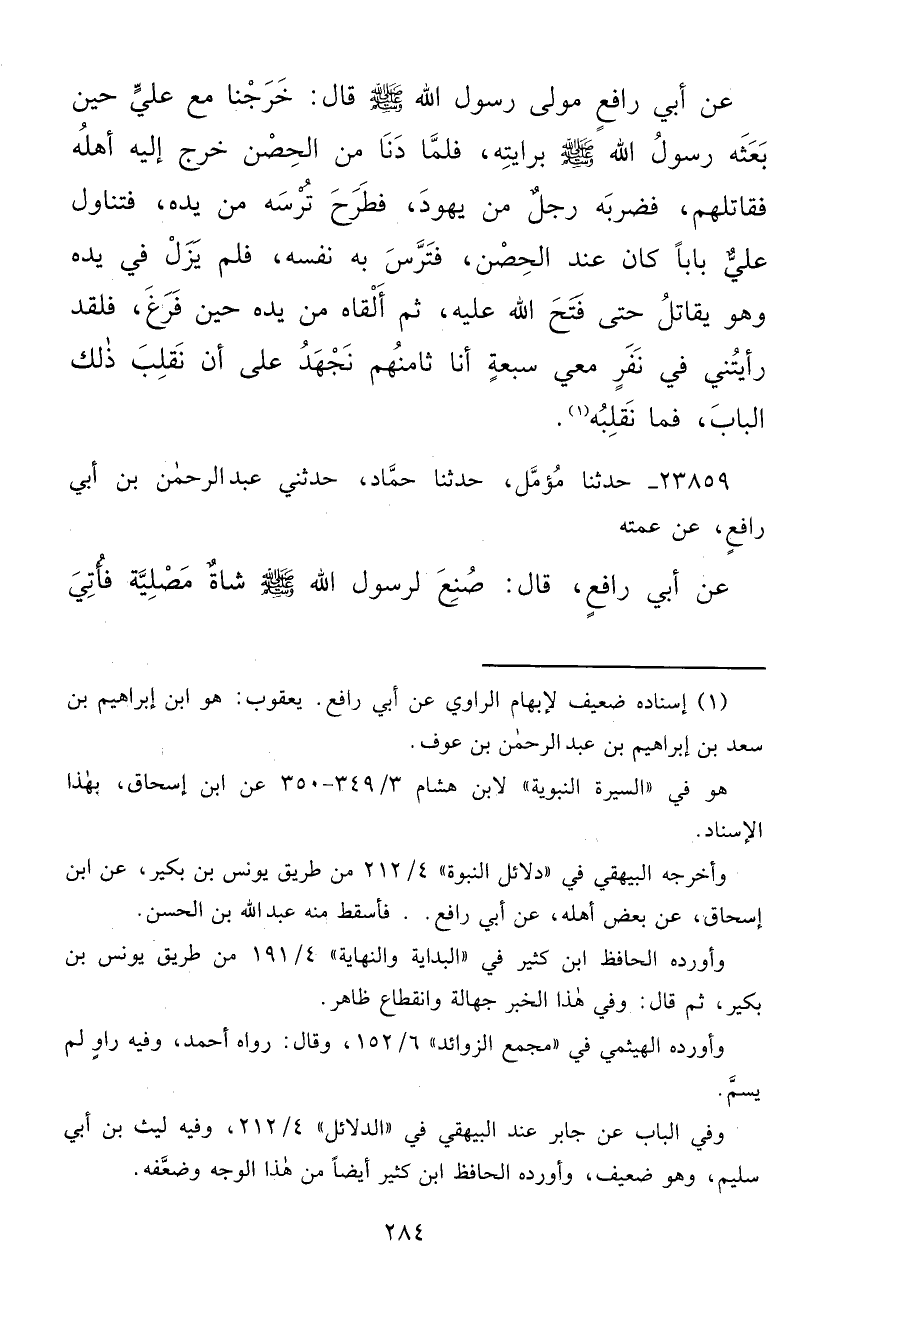 عن أبي رافعٍ مولى رسول الله ﷺ قال: خَرَجْنا مع عليٍّ حين
بَعَثَه رسولُ الله ﷺ برايتِه، فلمَّا دَنَا من الحِصْن خرج إليه أهلُه
فقاتلهم، فضربَه رجلٌ من يهودَ، فطَرَحَ تُرْسَه من يده، فتناول
عليٌّ باباً كان عند الحِصْن، فتَرَّسَ به نفسه، فلم يَزَلْ في يده
وهو يقاتلُ حتى فَتَحَ الله عليه، ثم أَلْقاه من يده حين فَرَغَ، فلقد
رأيتُني في نَفَرٍ معي سبعةٍ أنا ثامنُهم نَجْهَدُ على أن نَقلِبَ ذٰلك
البابَ، فما نَقلِبُه(١).
٢٣٨٥٩ـ حدثنا مُؤمَّل، حدثنا حمَّاد، حدثني عبد الرحمٰن بن أبي
رافعٍ، عن عمته
عن أبي رافعٍ، قال: صُنِعَ لرسول الله ﷺ شاةٌ مَصْلِيَّة فأُتِيَ
(١) إسناده ضعيف لإبهام الراوي عن أبي رافع. يعقوب: هو ابن إبراهيم بن
سعد بن إبراهيم بن عبد الرحمٰن بن عوف.
هو في «السيرة النبوية» لابن هشام ٣/ ٣٤٩-٣٥٠ عن ابن إسحاق، بهٰذا
الإسناد.
وأخرجه البيهقي في «دلائل النبوة» ٤/ ٢١٢ من طريق يونس بن بكير، عن ابن
إسحاق، عن بعض أهله، عن أبي رافع. . فأسقط منه عبد الله بن الحسن.
وأورده الحافظ ابن كثير في «البداية والنهاية» ٤/ ١٩١ من طريق يونس بن
بكير، ثم قال: وفي هٰذا الخبر جهالة وانقطاع ظاهر.
وأورده الهيثمي في «مجمع الزوائد» ٦/ ١٥٢، وقال: رواه أحمد، وفيه راوٍ لم
يسمَّ.
وفي الباب عن جابر عند البيهقي في «الدلائل» ٤/ ٢١٢، وفيه ليث بن أبي
سليم، وهو ضعيف، وأورده الحافظ ابن كثير أيضاً من هٰذا الوجه وضعَّفه.
٢٨٤